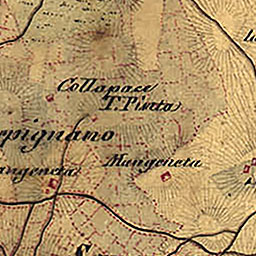 Collapace
T. Pinta
pignano
Mengeneta
angeneta